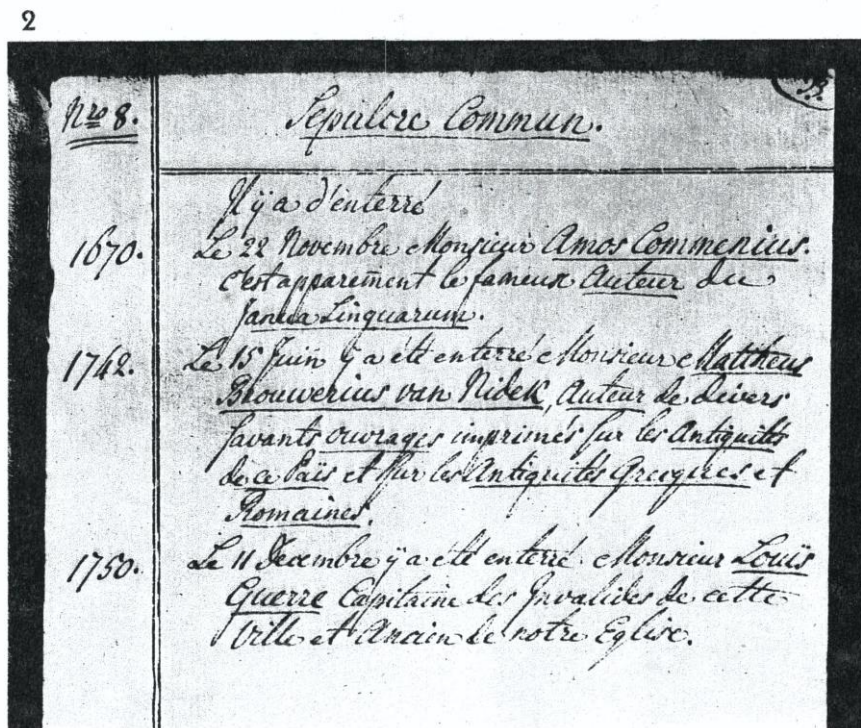 2
Nro 8. Sepulcre Commun.
Il ÿ a d'enterré
1670. Le 22 Novembre Monsieur Amos Commenius.
c'est apparem̃ent le fameux Auteur du
Janua Linguarum.
1742. Le 15 Juin ÿ a été enterré Monsieur Mattheus
Brouwerius van Nidek, Auteur de divers
savants ouvrages imprimés sur les Antiquités
de ce Païs et sur les Antiquités Grecques et
Romaines.
1750. Le 11 Decembre ÿ a été enterré Monsieur Louïs
Guerre Capitaine des Invalides de cette
Ville et Ancien de notre Eglise.